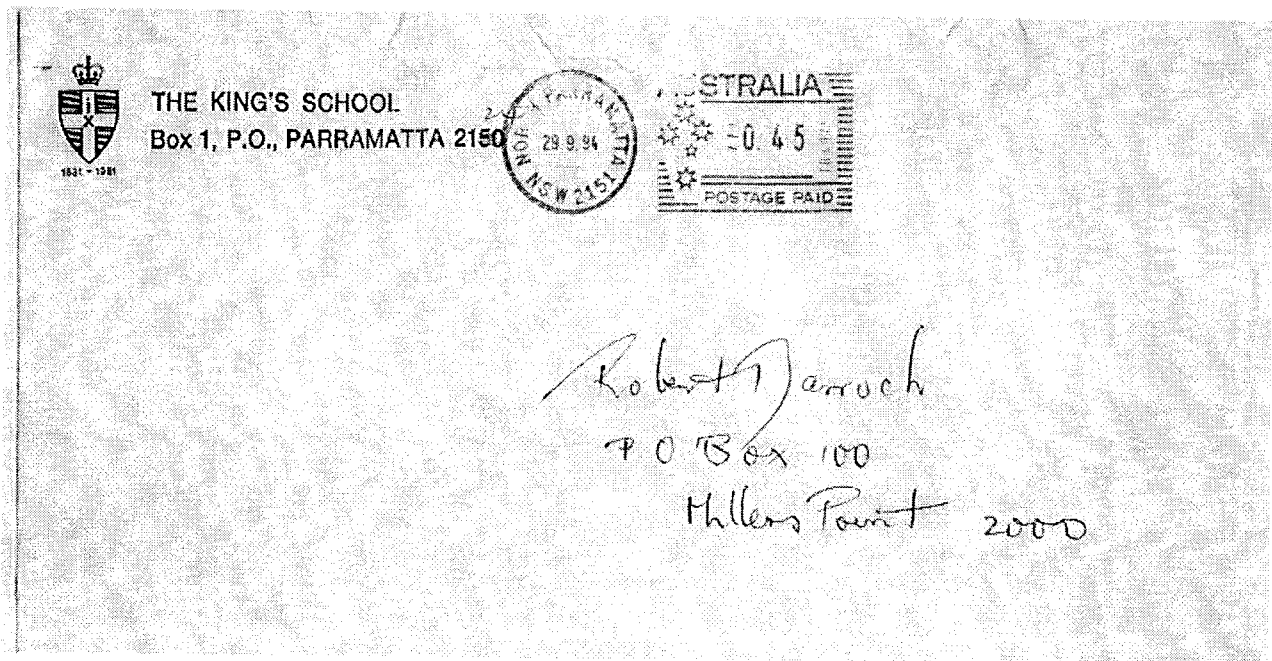 THE KING'S SCHOOL
Box 1, P.O., PARRAMATTA 2150
1831 - 1981
NORTH PARRAMATTA
29.9.94
NSW 2151
AUSTRALIA
0.45
POSTAGE PAID
Robert Darroch
P O Box 100
Millers Point 2000